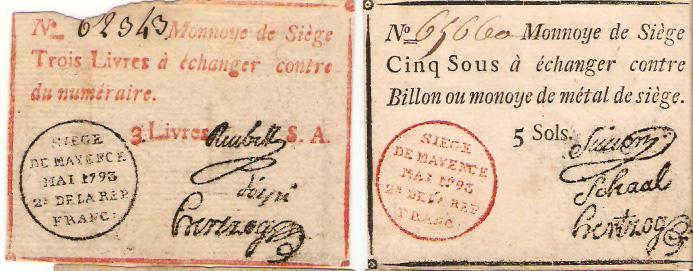 No 62343 Monnoye de Siège
Trois Livres à échanger contre
du numéraire.
3 Livres S. A.
SIEGE
DE MAYENCE
MAI 1793
2E DE LA REP
FRANC:
Hertzog
No 65660 Monnoye de Siège
Cinq Sous à échanger contre
Billon ou monoye de métal de siège.
5 Sols.
SIEGE
DE MAYENCE
MAI 1793
2E DE LA REP
FRANC:
Simon
Schaal
Hertzog